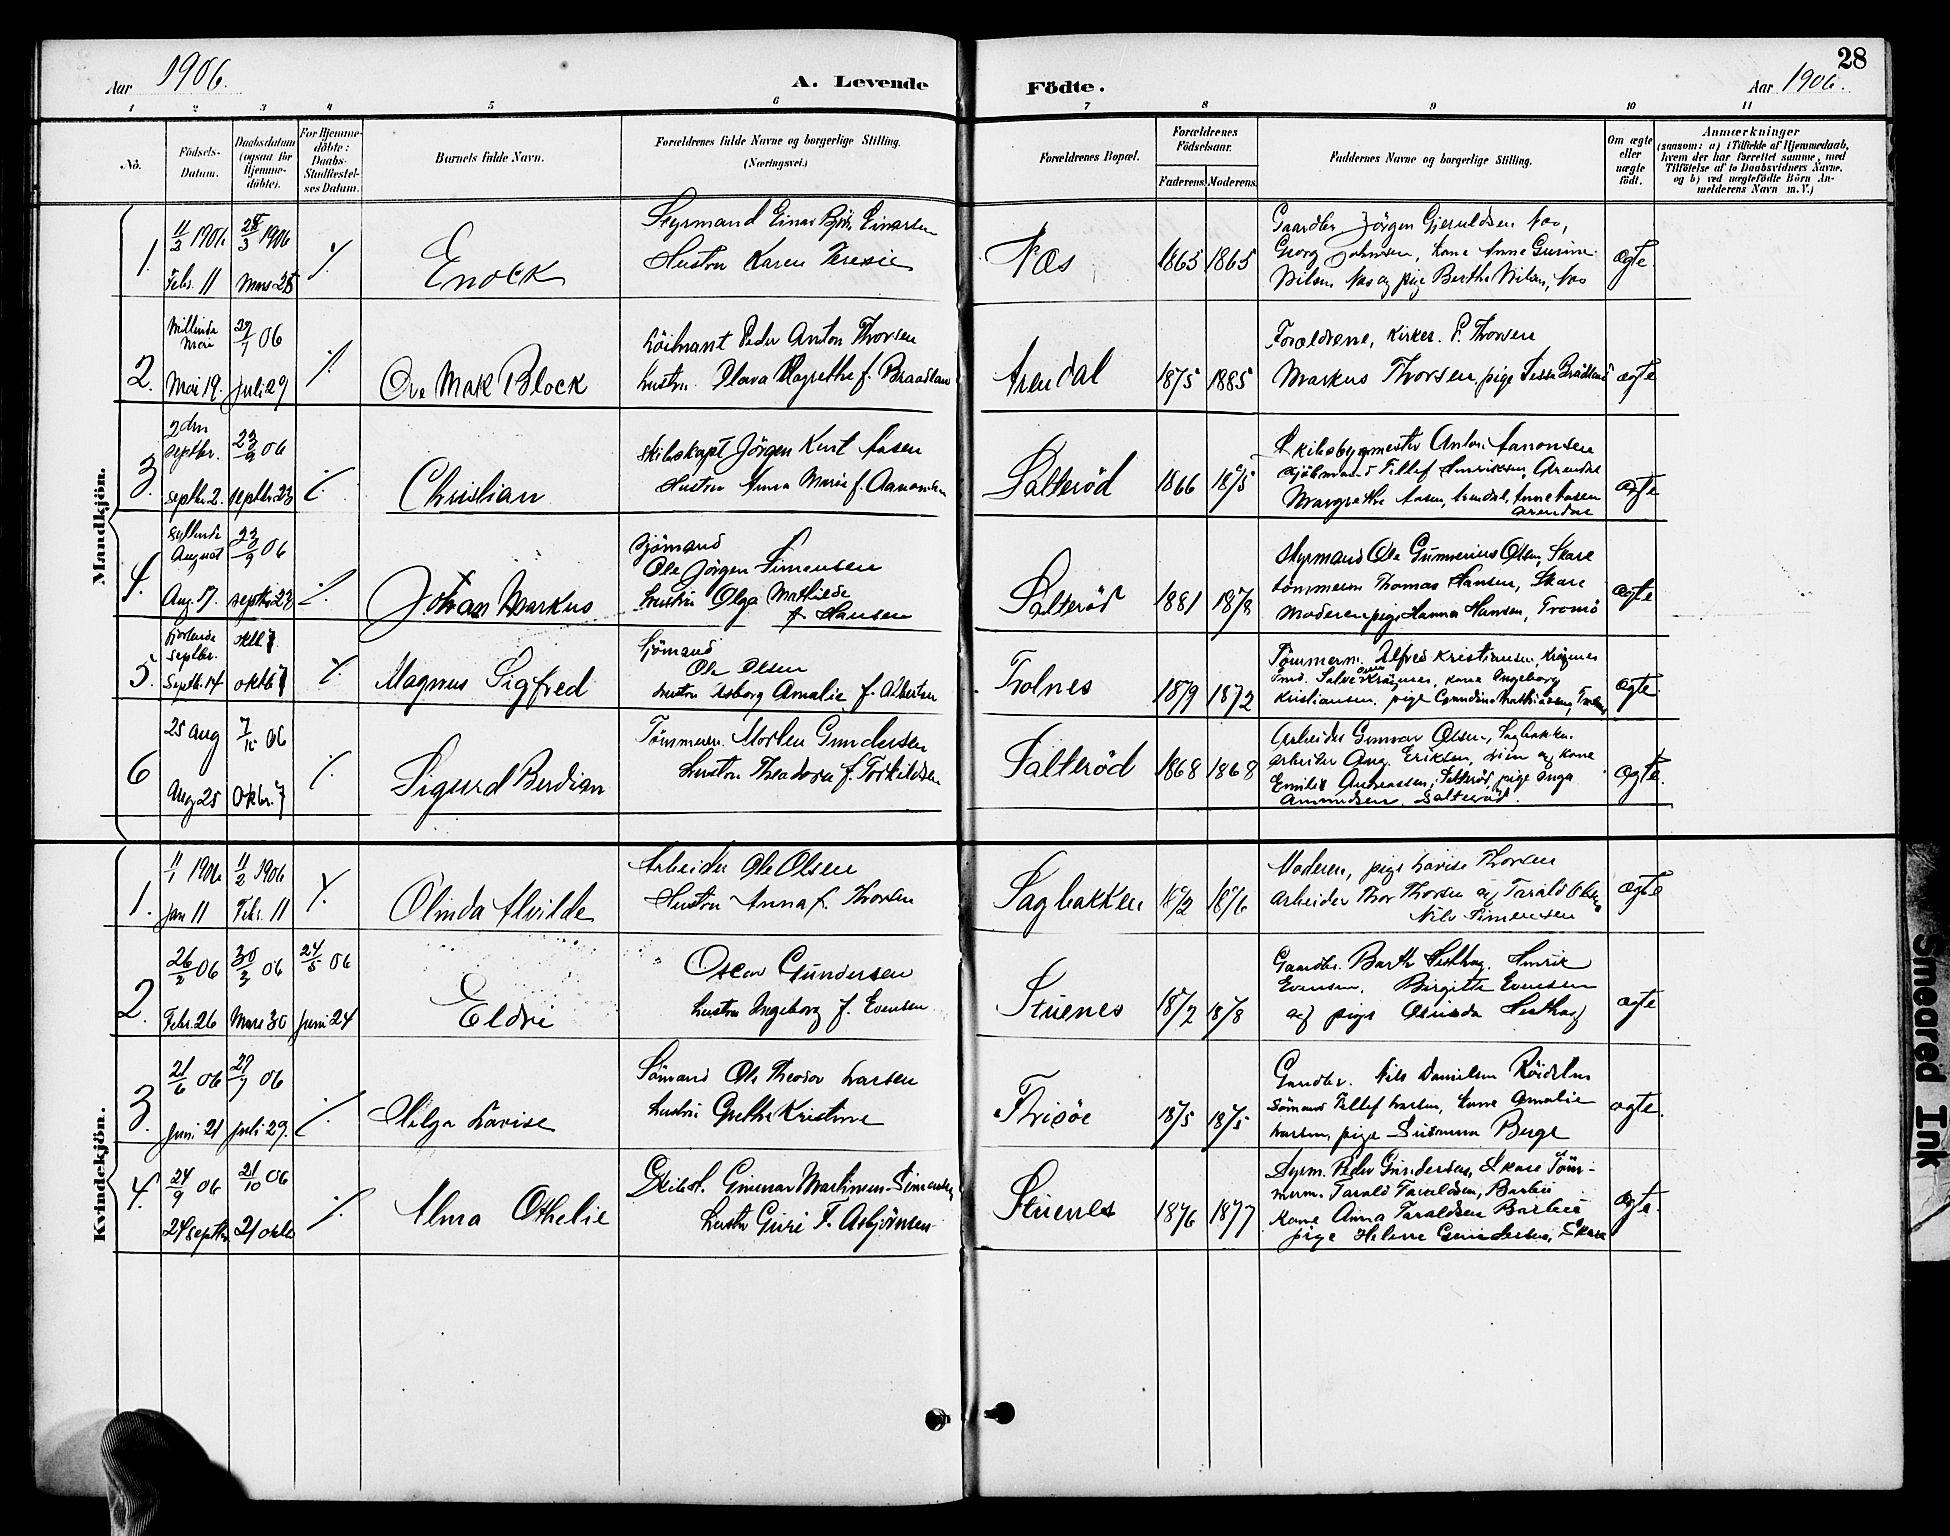 28
Aar 1906. A. Levende Födte. Aar 1906.
1 2 3 4 5 6 7 8 9 10 11
No.
Födsels-
Datum.
Daabsdatum
(ogsaa for
Hjemme-
döbte).
For Hjemme-
döbte:
Daabs-
Stadfæstel-
ses Datum.
Barnets fulde Navn.
Forældrenes fulde Navne og borgerlige Stilling.
(Næringsvei.)
Forældrenes Bopæl.
Forældrenes
Födselsaar.
Faderens. Moderens.
Faddernes Navne og borgerlige Stilling.
Om ægte
eller
uægte
födt.
Anmærkninger
(saasom: a) i Tilfælde af Hjemmedaab,
hvem der har forrettet samme, med
Tilföielse af to Daabsvidners Navne,
og b) ved uægtefödte Börn An-
melderens Navn m. V.)
Mandkjön.
1. 11/2 1906 1906
Febr. 11 Mars 25
Enock
Styrmand Einar Einarsen
Hustru Karen Teresie
Næs
1865 1865
Gaardbr Jörgen Gjeruldsen Næs,
Georg Johnsen, kone Anne Gurine
Nilsen Næs og pige Berthe Nilsen, Næs
ægte
2. Mai 29/7 06
Mai 19. Juli 29
Ove Mak Block
Löitnant Peder Anton Thorsen
hustru Magrethe f. Braadland
Arendal
1875 1885
Forældrene, Kirkes. P. Thorsen
Markus Thorsen, pige
ægte
3. 2den septbr. 23/9 06
septbr 2. septbr 23
Christian
skibskapt Jörgen Kurt Aasen
Hustru Anna Marie f. Aanonsen
Salteröd
1866 1875
Skibsbygmester Anton Aanonsen
Tellef Henriksen, Arendal
Margrethe Aasen, Arendal, Anne Aasen
Arendal
ægte
4. syttende August 23/9 06
Aug. 17. septbr 23
Johan Markus
Sjömand
Ole Jörgen Simensen
hustru Olga Mathilde
f. Hansen
Salteröd
1881 1878
Styrmand Ole Gunnerius Olsen, Skare
tömmerm Thomas Hansen, Skare
Moderen pige Hanna Hansen, Tromö
ægte
5. fjortende septbr. oktb 7
Septb. 14 oktb 7
Magnus Sigfred
Sjömand
Ole Olsen
hustru Amalie f. Albertsen
Tolnes
1879 1872
Tömmerm. Alfred Kristiansen, Krögenes
kone Ingeborg
Kristiansen, pige
ægte
6 25 aug 7/10 06
Aug 25 Oktbr. 7
Sigurd Berdian
Tömmerm. Morten Gundersen
hustru Theodora f. Torkildsen
Salteröd
1868 1868
Arbeider Gunnar Olsen, Sagbakken
arbeider Aug. Eriksen, og kone
Emilie Andreassen, Salteröd, pige Inga
Amundsen, Salteröd.
ægte.
Kvindekjön.
1. 11/1 1906 11/2 1906
Jan 11 Febr. 11
Olinda Alvilde
Arbeider Ole Olsen
Hustru Anna f. Thorsen
Sagbakken
1872 1876
Moderen, pige Lovise Thorsen
arbeider Thor Thorsen og Tarald Olsen
Nils Simensen
ægte
2. 26/2 06 30/3 06 06
Febr. 26 Mars 30 Juni 24
Eldri
Oscar Gundersen
hustru Ingeborg f. Evensen
Stuenes
1872 1878
Gaardbr. Barth Henrik
Evensen, Birgitte Evensen
og pige
ægte
3. 21/6 06 29/7 06
Juni 21 Juli 29.
Helga Lovise
Sömand Ole Theodor Larsen
hustru Grethe Kristine
Frisöe
1875 1875
Gaardbr. Nils Danielsen
Sömand Tellef Larsen, kone Amalie
Larsen, pige Berge
ægte.
4. 24/9 06 21/10 06
24 septbr 21 oktb
Alma Othelie
Gunnar Martinius Simensen
hustr Guri f. Asbjörnsen
Stuenes
1876 1877
Styrm. Peder Gundersen, Skare Töm-
merm. Tarald Taraldsen, Barbu
Kone Anna Taraldsen Barbu
pige Helene Gundersen, Skare
ægte.
Smeared Ink